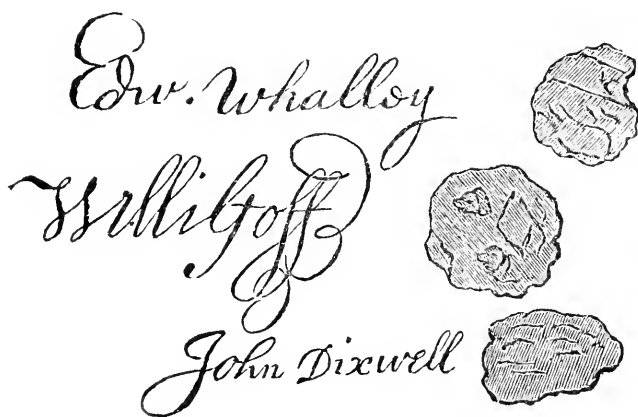 Edw. Whalley
Willi Goff
John Dixwell